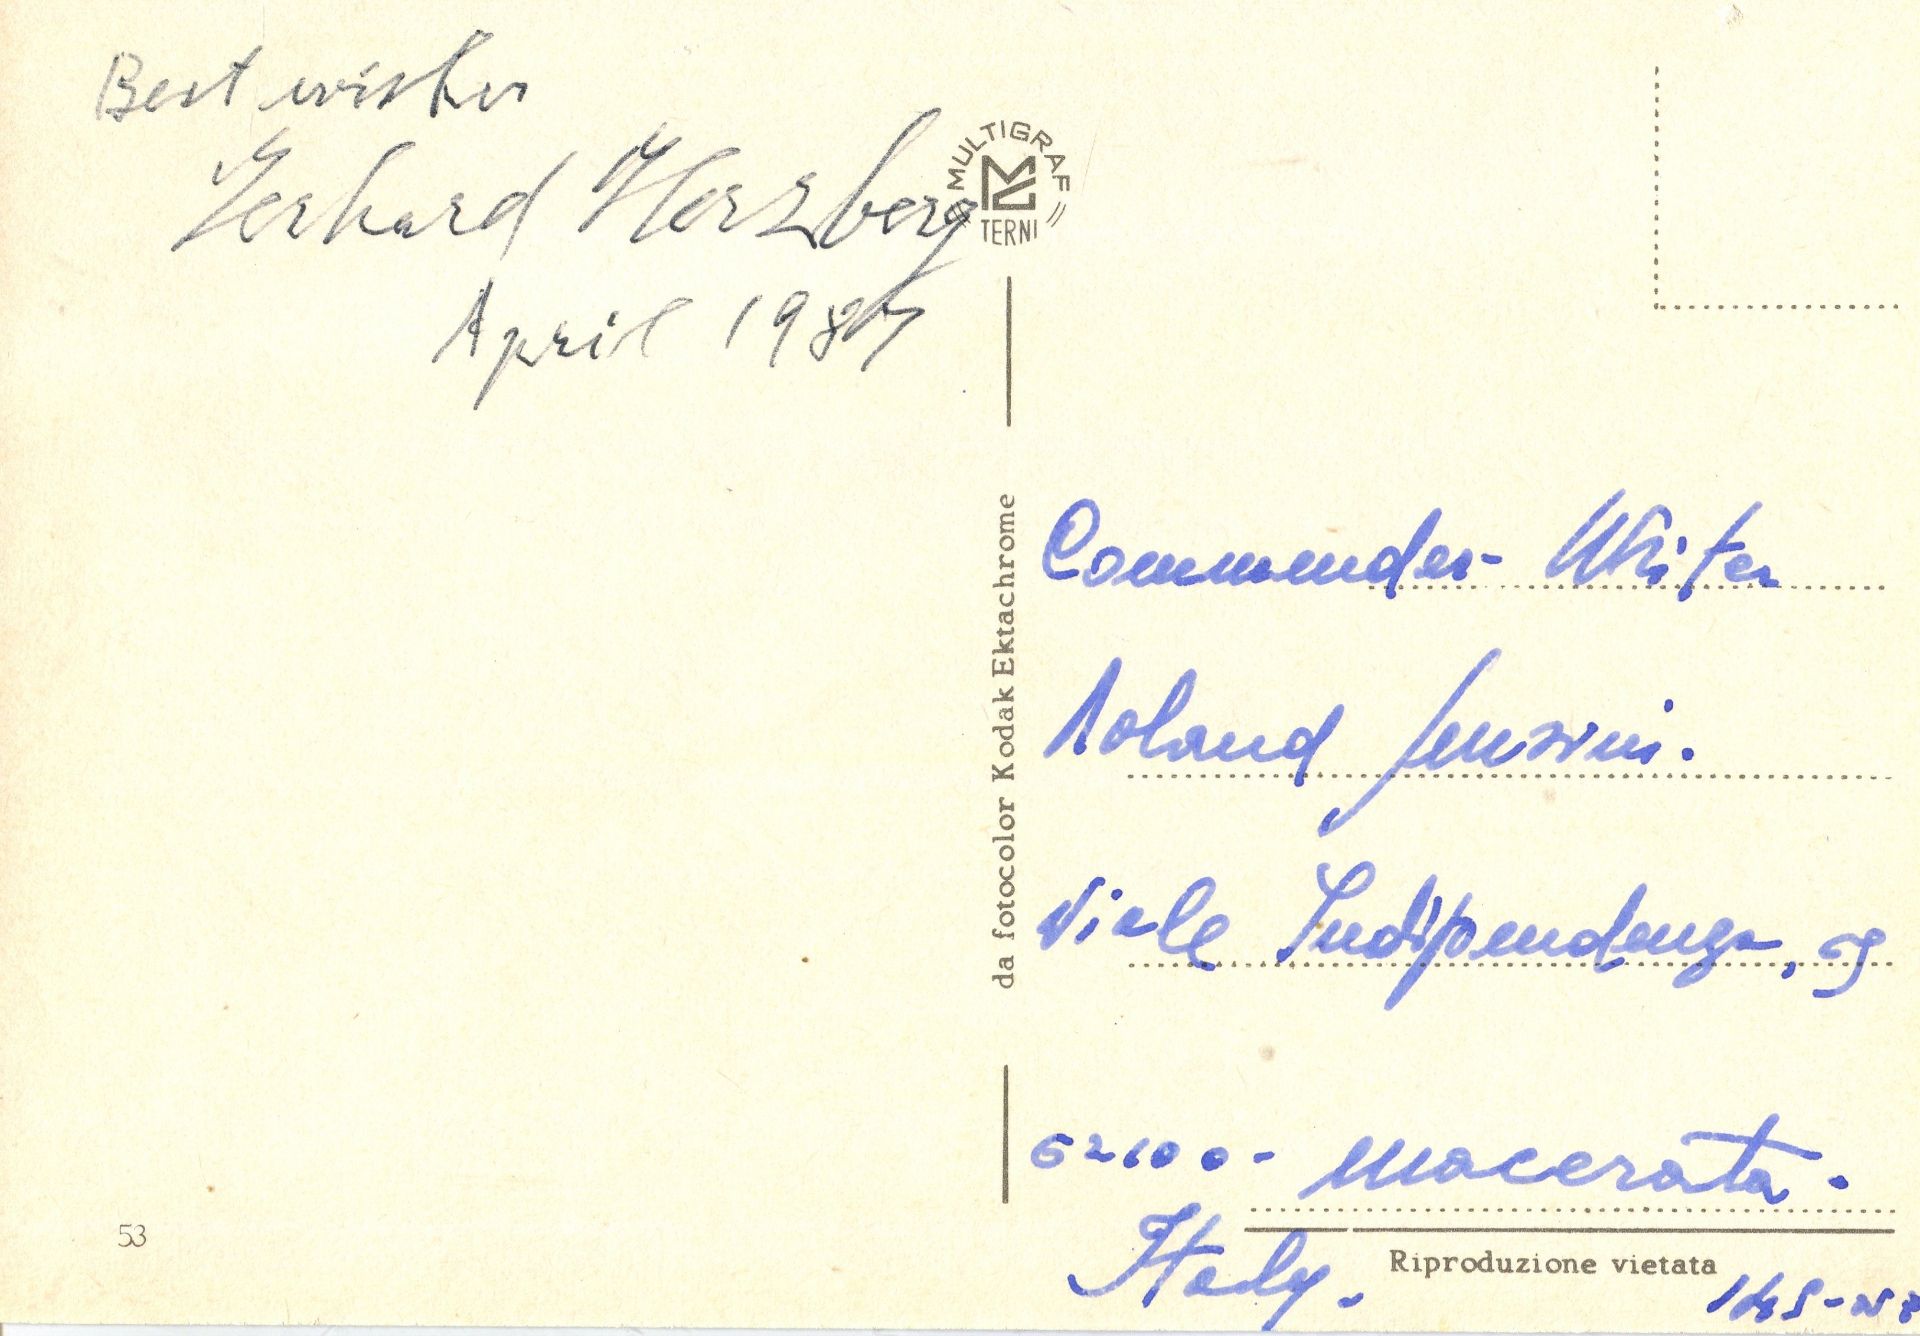 Best wishes
Gerhard Herzberg
April 198
MULTIGRAF
TERNI
da fotocolor Kodak Ektachrome
Commender- Writer
Roland
Viale Indipendenza,
62100- Macerata.
Italy.
Riproduzione vietata
53